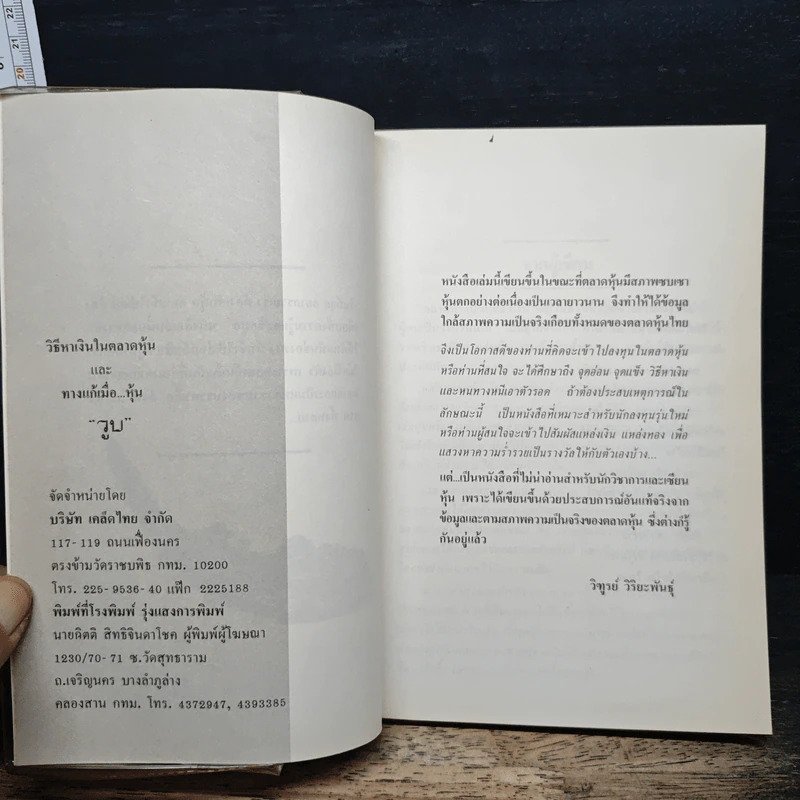 22
21
20
วิธีหาเงินในตลาดหุ้น
และ
ทางแก้เมื่อ...หุ้น
"วูบ"
จัดจำหน่ายโดย
บริษัท เคล็ดไทย จำกัด
117-119 ถนนเฟื่องนคร
ตรงข้ามวัดราชบพิธ กทม. 10200
โทร. 225-9536-40 แฟ็ก 2225188
พิมพ์ที่โรงพิมพ์ รุ่งแสงการพิมพ์
นายกิตติ สิทธิจินดาโชค ผู้พิมพ์ผู้โฆษณา
1230/70-71 ซ.วัดสุทธาราม
ถ.เจริญนคร บางลำภูล่าง
คลองสาน กทม. โทร. 4372947, 4393385
หนังสือเล่มนี้เขียนขึ้นในขณะที่ตลาดหุ้นมีสภาพซบเซา
หุ้นตกอย่างต่อเนื่องเป็นเวลายาวนาน จึงทำให้ได้ข้อมูล
ใกล้สภาพความเป็นจริงเกือบทั้งหมดของตลาดหุ้นไทย
จึงเป็นโอกาสดีของท่านที่คิดจะเข้าไปลงทุนในตลาดหุ้น
หรือท่านที่สนใจ จะได้ศึกษาถึง จุดอ่อน จุดแข็ง วิธีหาเงิน
และหนทางหนีเอาตัวรอด ถ้าต้องประสบเหตุการณ์ใน
ลักษณะนี้ เป็นหนังสือที่เหมาะสำหรับนักลงทุนรุ่นใหม่
หรือท่านผู้สนใจจะเข้าไปสัมผัสแหล่งเงิน แหล่งทอง เพื่อ
แสวงหาความร่ำรวยเป็นรางวัลให้กับตัวเองบ้าง...
แต่...เป็นหนังสือที่ไม่น่าอ่านสำหรับนักวิชาการและเซียน
หุ้น เพราะได้เขียนขึ้นด้วยประสบการณ์อันแท้จริงจาก
ข้อมูลและตามสภาพความเป็นจริงของตลาดหุ้น ซึ่งต่างก็รู้
กันอยู่แล้ว
วิฑูรย์ วิริยะพันธุ์